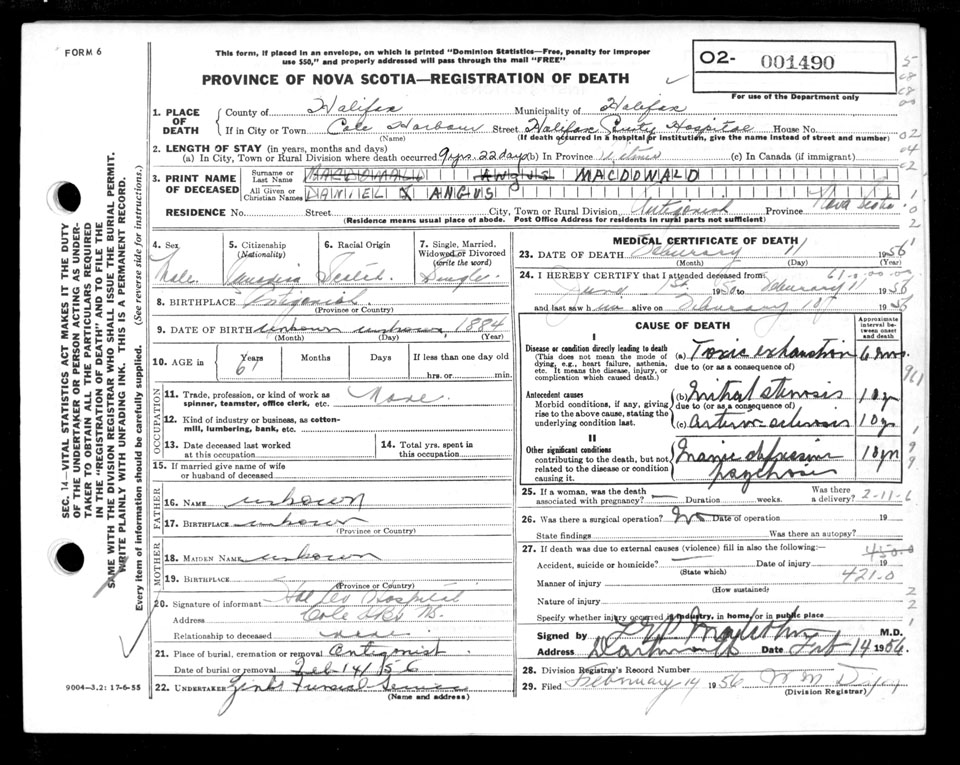 FORM 6
This form, if placed in an envelope, on which is printed "Dominion Statistics—Free, penalty for improper
use $50," and properly addressed will pass through the mail "FREE"
PROVINCE OF NOVA SCOTIA—REGISTRATION OF DEATH
O2- 001490
For use of the Department only
1. PLACE OF DEATH
County of Halifax Municipality of Halifax
If in City or Town Cole Harbour Street Halifax County Hospital House No.
(Name) (If death occurred in a hospital or institution, give the name instead of street and number)
2. LENGTH OF STAY (in years, months and days)
(a) In City, Town or Rural Division where death occurred 9 yrs. 22 days (b) In Province (c) In Canada (if immigrant)
3. PRINT NAME OF DECEASED
Surname or Last Name MACDONALD ANGUS MACDONALD
All Given or Christian Names DANIEL ANGUS
RESIDENCE No. Street City, Town or Rural Division Antigonish Province Nova Scotia
(Residence means usual place of abode. Post Office Address for residents in rural parts not sufficient)
4. Sex
Male
5. Citizenship
(Nationality)
Canadian
6. Racial Origin
Scotch
7. Single, Married,
Widowed or Divorced
(write the word)
Single
8. BIRTHPLACE Antigonish
(Province or Country)
9. DATE OF BIRTH unknown unknown 1884
(Month) (Day) (Year)
10. AGE in Years Months Days If less than one day old
hrs. or min.
OCCUPATION
11. Trade, profession, or kind of work as
spinner, teamster, office clerk, etc. None
12. Kind of industry or business, as cotton-
mill, lumbering, bank, etc.
13. Date deceased last worked
at this occupation
14. Total yrs. spent in
this occupation
15. If married give name of wife
or husband of deceased
FATHER
16. NAME unknown
17. BIRTHPLACE unknown
(Province or Country)
MOTHER
18. MAIDEN NAME unknown
19. BIRTHPLACE
(Province or Country)
20. Signature of informant Hal Co Hospital
Address Cole Hbr NS.
Relationship to deceased none
21. Place of burial, cremation or removal Antigonish
Date of burial or removal Feb 14/56
22. UNDERTAKER Funeral Service
(Name and address)
MEDICAL CERTIFICATE OF DEATH
23. DATE OF DEATH February 11 1956
(Month) (Day) (Year)
24. I HEREBY CERTIFY that I attended deceased from
June 1st 1950 to February 11 1956
and last saw him alive on February 10th 1956
CAUSE OF DEATH
Approximate interval between onset and death
I
Disease or condition directly leading to death
(This does not mean the mode of dying, e.g., heart failure, asthenia, etc. It means the disease, injury, or complication which caused death.)
(a) Toxic exhaustion 6 mos.
due to (or as a consequence of)
Antecedent causes
Morbid conditions, if any, giving rise to the above cause, stating the underlying condition last.
(b) Mitral stenosis 10 yr
due to (or as a consequence of)
(c) Arterio-sclerosis 10 yr
II
Other significant conditions
contributing to the death, but not related to the disease or condition causing it.
Manic depressive psychosis 10 yr
25. If a woman, was the death associated with pregnancy? Duration weeks. Was there a delivery? 2-11-6
26. Was there a surgical operation? No Date of operation 19
State findings Was there an autopsy?
27. If death was due to external causes (violence) fill in also the following:—
450.0
Accident, suicide or homicide? Date of injury 19
(State which)
421.0
Manner of injury
(How sustained)
Nature of injury
Specify whether injury occurred in industry, in home, or in public place
Signed by M.D.
Address Dartmouth Date Feb 14 1956.
28. Division Registrar's Record Number
29. Filed February 14 1956
(Division Registrar)
9004—3.2: 17-6-55
SEC. 14—VITAL STATISTICS ACT MAKES IT THE DUTY
OF THE UNDERTAKER OR PERSON ACTING AS UNDER-
TAKER TO OBTAIN ALL THE PARTICULARS REQUIRED
IN THE "REGISTRATION OF DEATH" AND TO FILE THE
SAME WITH THE DIVISION REGISTRAR WHO SHALL ISSUE THE BURIAL PERMIT.
WRITE PLAINLY WITH UNFADING INK. THIS IS A PERMANENT RECORD.
Every item of information should be carefully supplied. (See reverse side for instructions.)